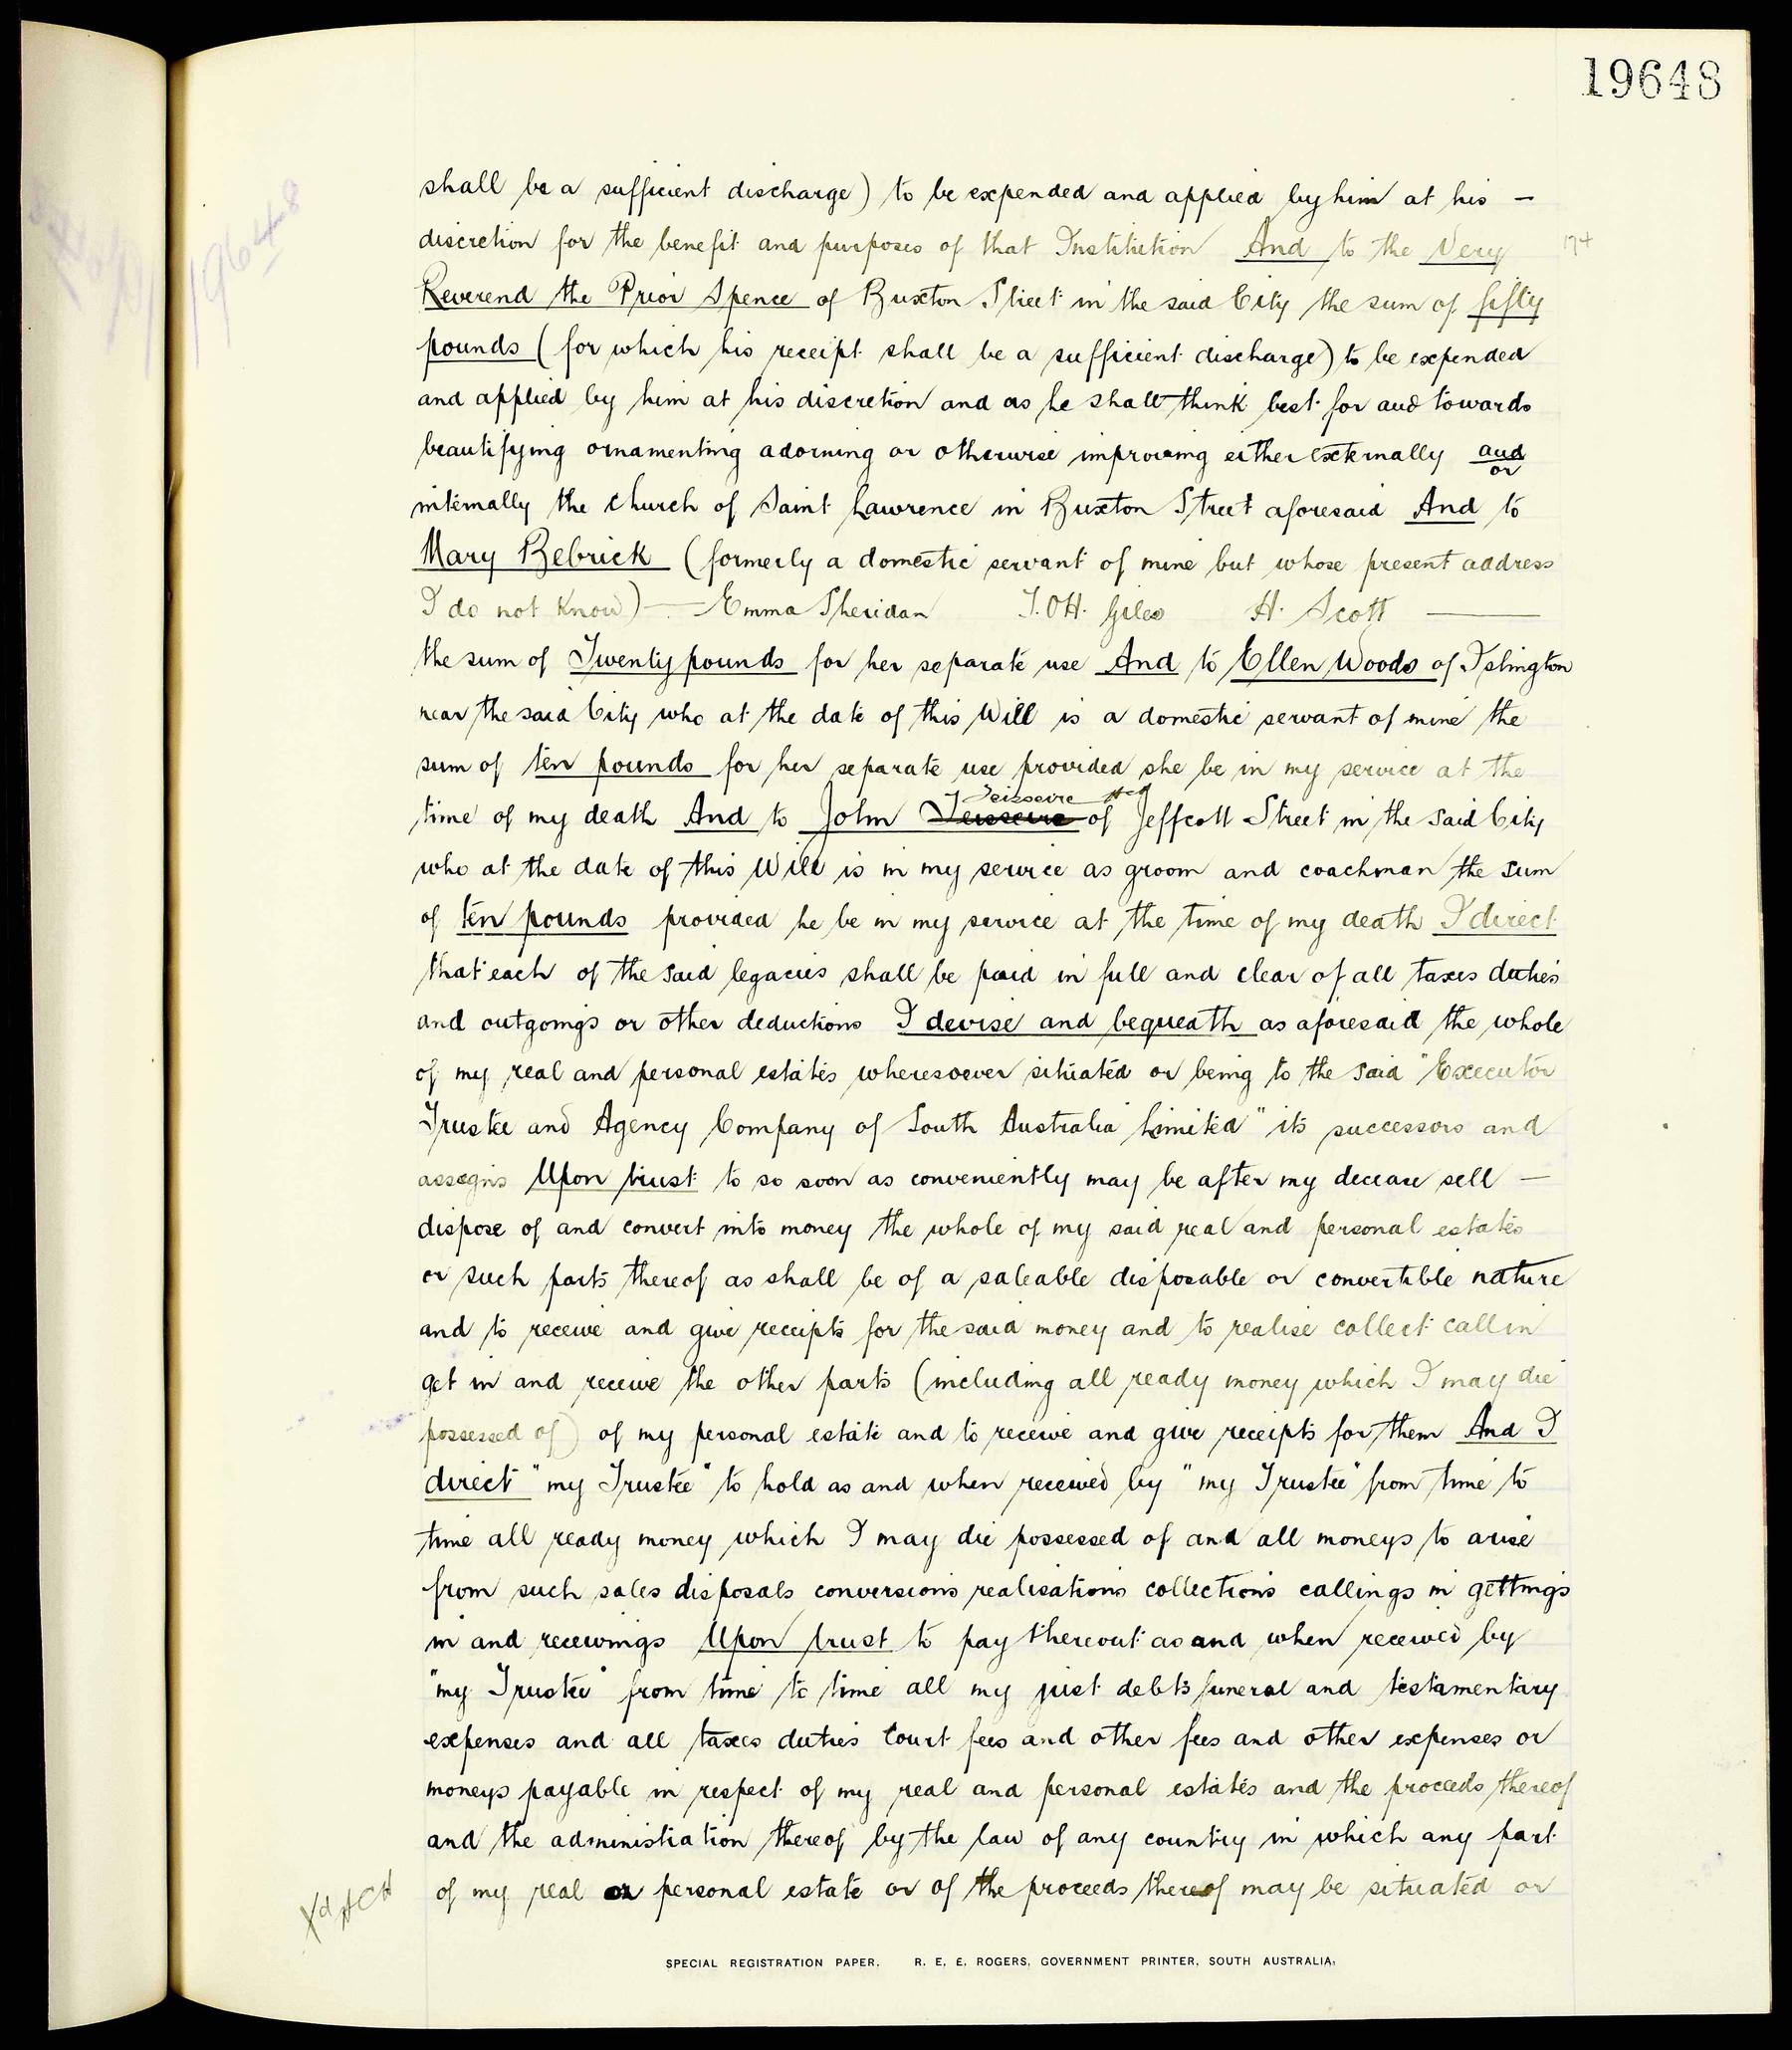 19648
19648
shall be a sufficient discharge) to be expended and applied by him at his —
discretion for the benefit and purposes of that Institution And to the Very
174
Reverend the Prior Spence of Buxton Street in the said City the sum of fifty
pounds (for which his receipt shall be a sufficient discharge) to be expended
and applied by him at his discretion and as he shall think best for and towards
beautifying ornamenting adorning or otherwise improving either externally and
or
internally the Church of Saint Lawrence in Buxton Street aforesaid And to
Mary Rebrick (formerly a domestic servant of mine but whose present address
I do not know) — Emma Sheridan T.OH. Giles H. Scott —
the sum of Twenty pounds for her separate use And to Ellen Woods of Islington
near the said City who at the date of this Will is a domestic servant of mine the
sum of ten pounds for her separate use provided she be in my service at the
Teisseire
time of my death And to John Teisseire of Jeffcott Street in the said City
who at the date of this Will is in my service as groom and coachman the sum
of ten pounds provided he be in my service at the time of my death I direct
that each of the said legacies shall be paid in full and clear of all taxes duties
and outgoings or other deductions I devise and bequeath as aforesaid the whole
of my real and personal estates wheresoever situated or being to the said "Executor
Trustee and Agency Company of South Australia Limited" its successors and
assigns Upon trust to so soon as conveniently may be after my decease sell —
dispose of and convert into money the whole of my said real and personal estates
or such parts thereof as shall be of a saleable disposable or convertible nature
and to receive and give receipts for the said money and to realise collect call in
get in and receive the other parts (including all ready money which I may die
possessed of) of my personal estate and to receive and give receipts for them And I
direct "my Trustee" to hold as and when received by "my Trustee" from time to
time all ready money which I may die possessed of and all moneys to arise
from such sales disposals conversions realisations collections callings in gettings
in and receivings Upon trust to pay thereout as and when received by
"my Trustee" from time to time all my just debts funeral and testamentary
expenses and all taxes duties Court fees and other fees and other expenses or
moneys payable in respect of my real and personal estates and the proceeds thereof
and the administration thereof by the law of any country in which any part
of my real or personal estate or of the proceeds thereof may be situated or
Xd ACH
SPECIAL REGISTRATION PAPER. R. E. E. ROGERS, GOVERNMENT PRINTER, SOUTH AUSTRALIA.